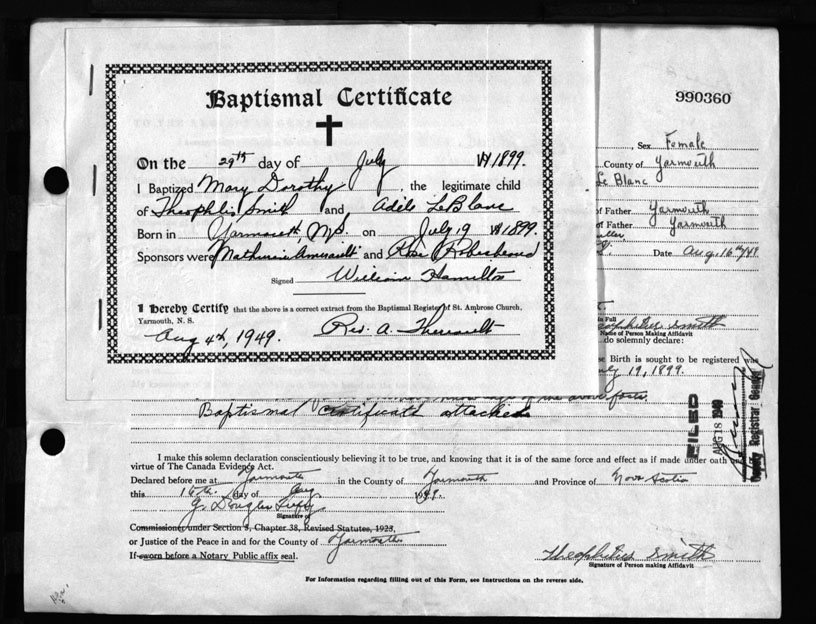 Baptismal Certificate
On the 29th day of July 1899.
I Baptized Mary Dorothy, the legitimate child
of Theophilis Smith and Adele LeBlanc
Born in Yarmouth N.S. on July 19 1899.
Sponsors were Mathurin Amirault and Rose Robichaud
Signed William Hamilton
I hereby Certify that the above is a correct extract from the Baptismal Register of St. Ambrose Church,
Yarmouth, N. S.
Aug 4th, 1949. Rev. A. Theriault
990360
Sex Female
County of Yarmouth
Le Blanc
of Father Yarmouth
of Father Yarmouth
Date Aug. 16th/49
in Full
Theophilus Smith
Name of Person Making Affidavit
do solemnly declare:
Birth is sought to be registered was
July 19, 1899.
knowledge of the above facts.
Baptismal Certificate attached
FILED
AUG 18 1949
Deputy Registrar General
I make this solemn declaration conscientiously believing it to be true, and knowing that it is of the same force and effect as if made under oath and
virtue of The Canada Evidence Act.
Declared before me at Yarmouth in the County of Yarmouth and Province of Nova Scotia
this 16th day of Aug 1949.
J. Douglas
Signature of
Commissioner under Section 3, Chapter 38, Revised Statutes, 1923,
or Justice of the Peace in and for the County of Yarmouth
If sworn before a Notary Public affix seal.
Theophilus Smith
Signature of Person making Affidavit
For Information regarding filling out of this Form, see Instructions on the reverse side.